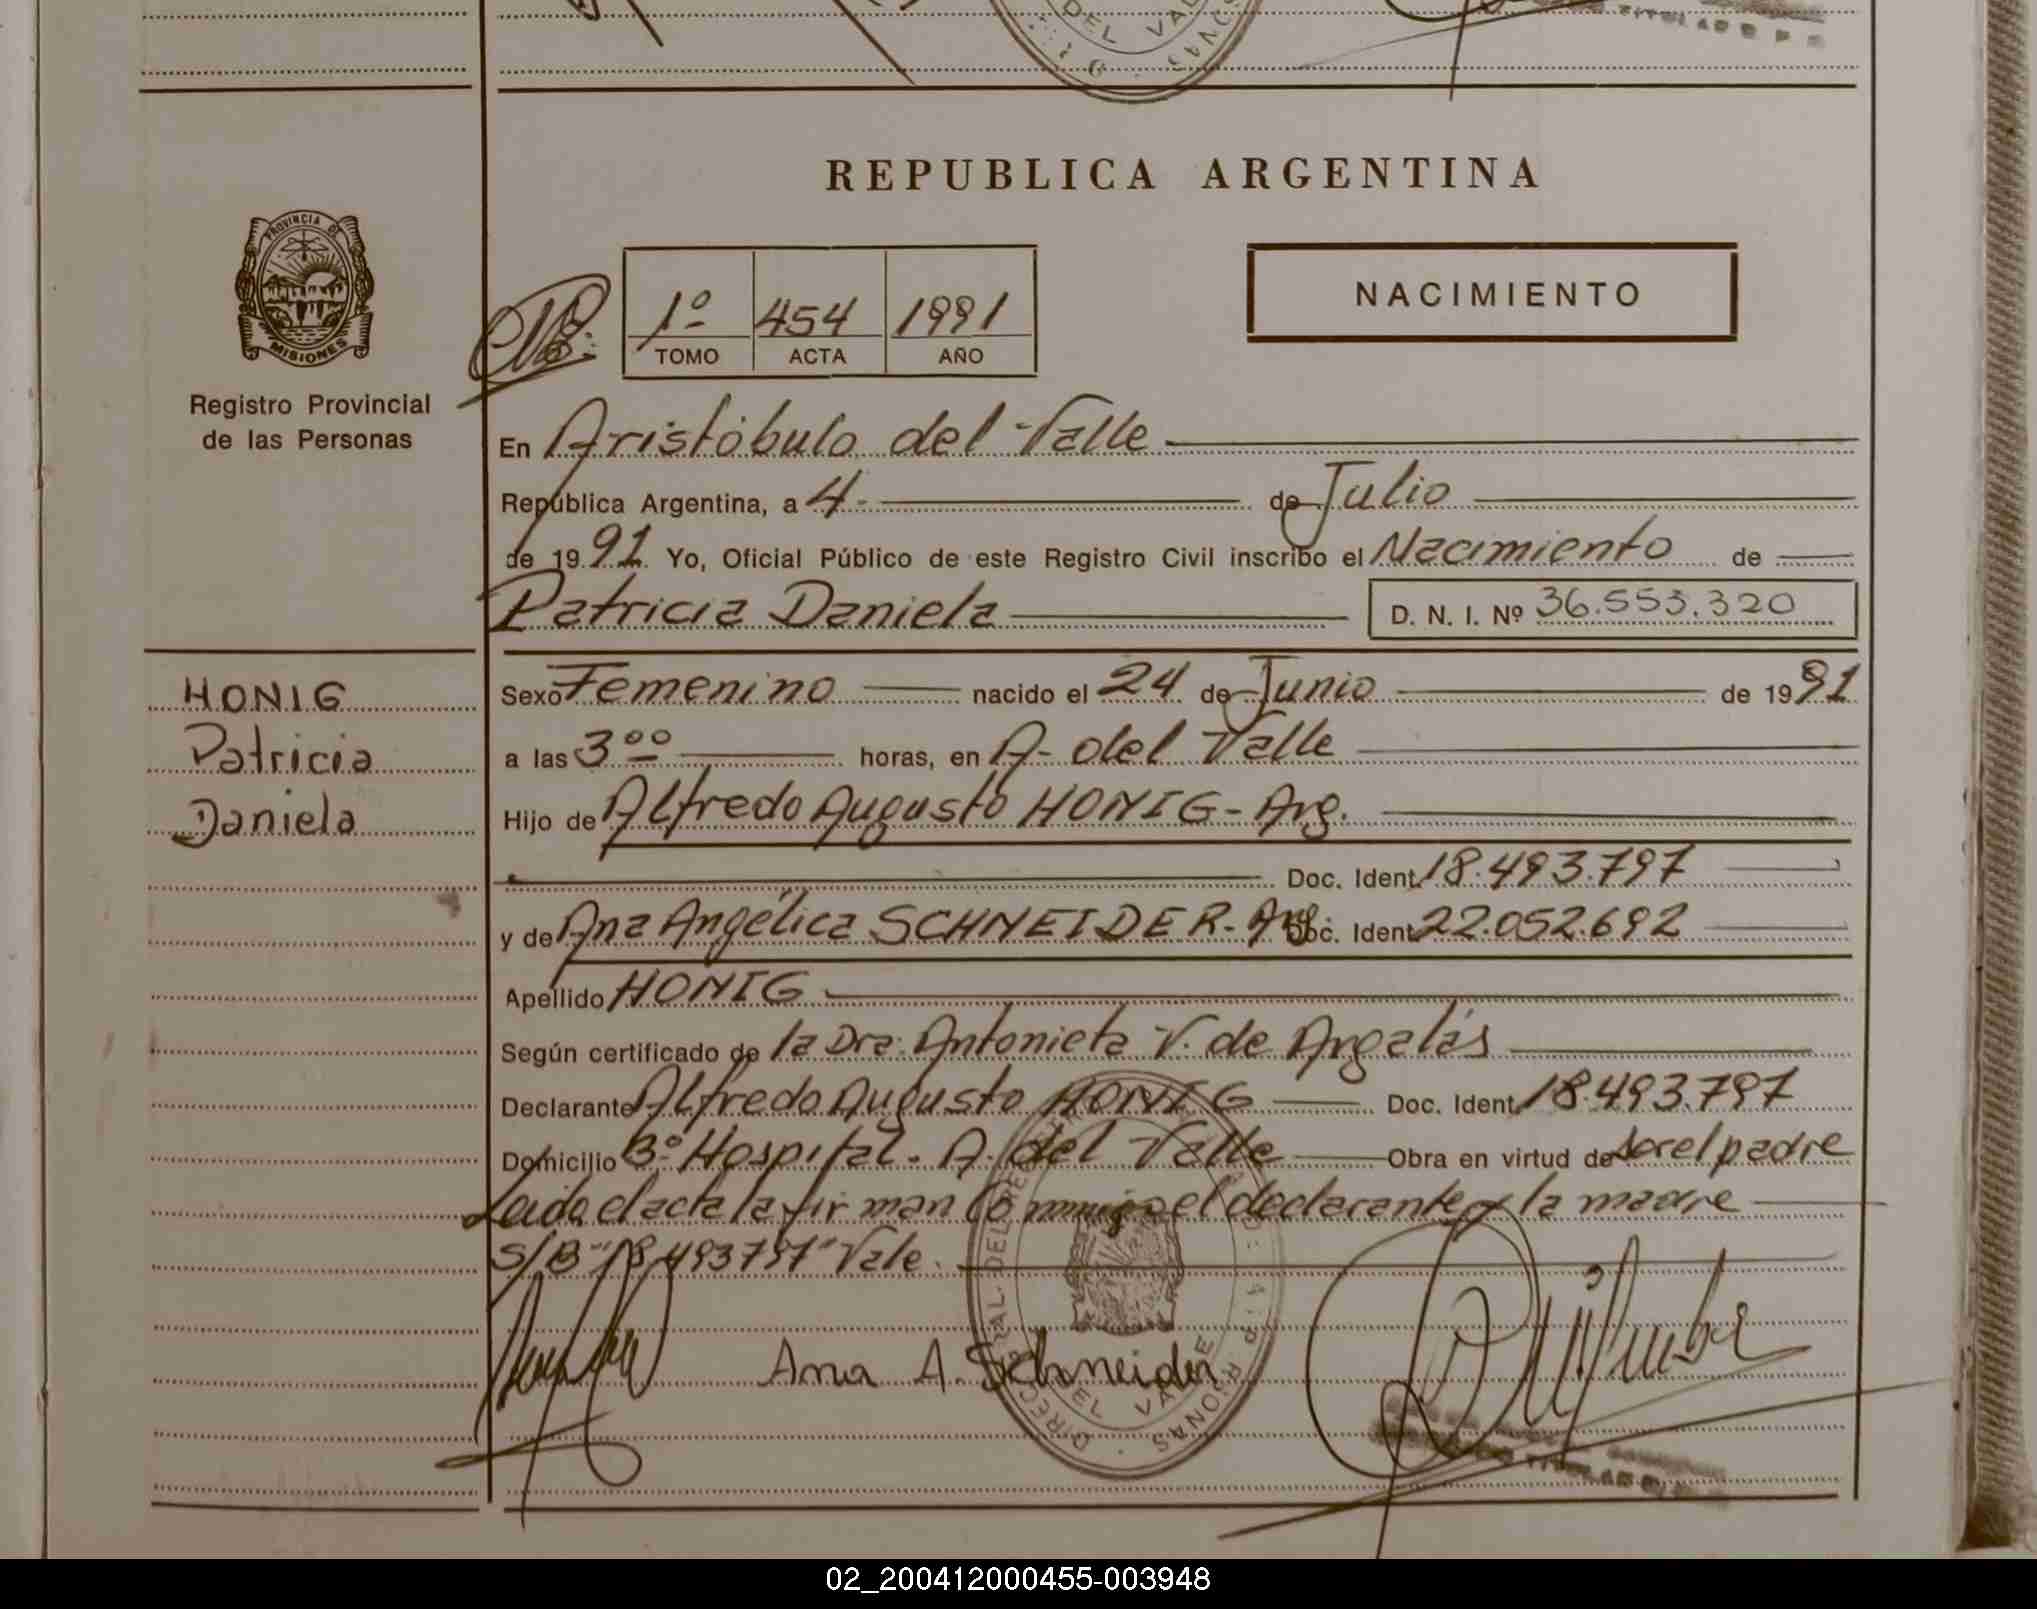 DEL VALLE
TITULAR R. P. P.
REPUBLICA ARGENTINA
PROVINCIA DE
MISIONES
Registro Provincial
de las Personas
1º 454 1991
TOMO ACTA AÑO
NACIMIENTO
En Aristóbulo del Valle
República Argentina, a 4 de Julio
de 1991 Yo, Oficial Público de este Registro Civil inscribo el Nacimiento de
Patricia Daniela D. N. I. Nº 36.553.320
HONIG
Patricia
Daniela
Sexo Femenino nacido el 24 de Junio de 1991
a las 3ºº horas, en A- del Valle
Hijo de Alfredo Augusto HONIG- Arg.
Doc. Ident. 18.493.797
y de Ana Angélica SCHNEIDER- Arg. Doc. Ident. 22.052.692
Apellido HONIG
Según certificado de la Dra. Antonieta V. de Argalás
Declarante Alfredo Augusto HONIG Doc. Ident. 18.493.797
Domicilio Bº Hospital- A. del Valle Obra en virtud de ser el padre
Leida el acta la firman Conmigo el declarante y la madre
S/B "18.493797" Vale.
Ana A. Schneider
DEL VALLE
02_200412000455-003948